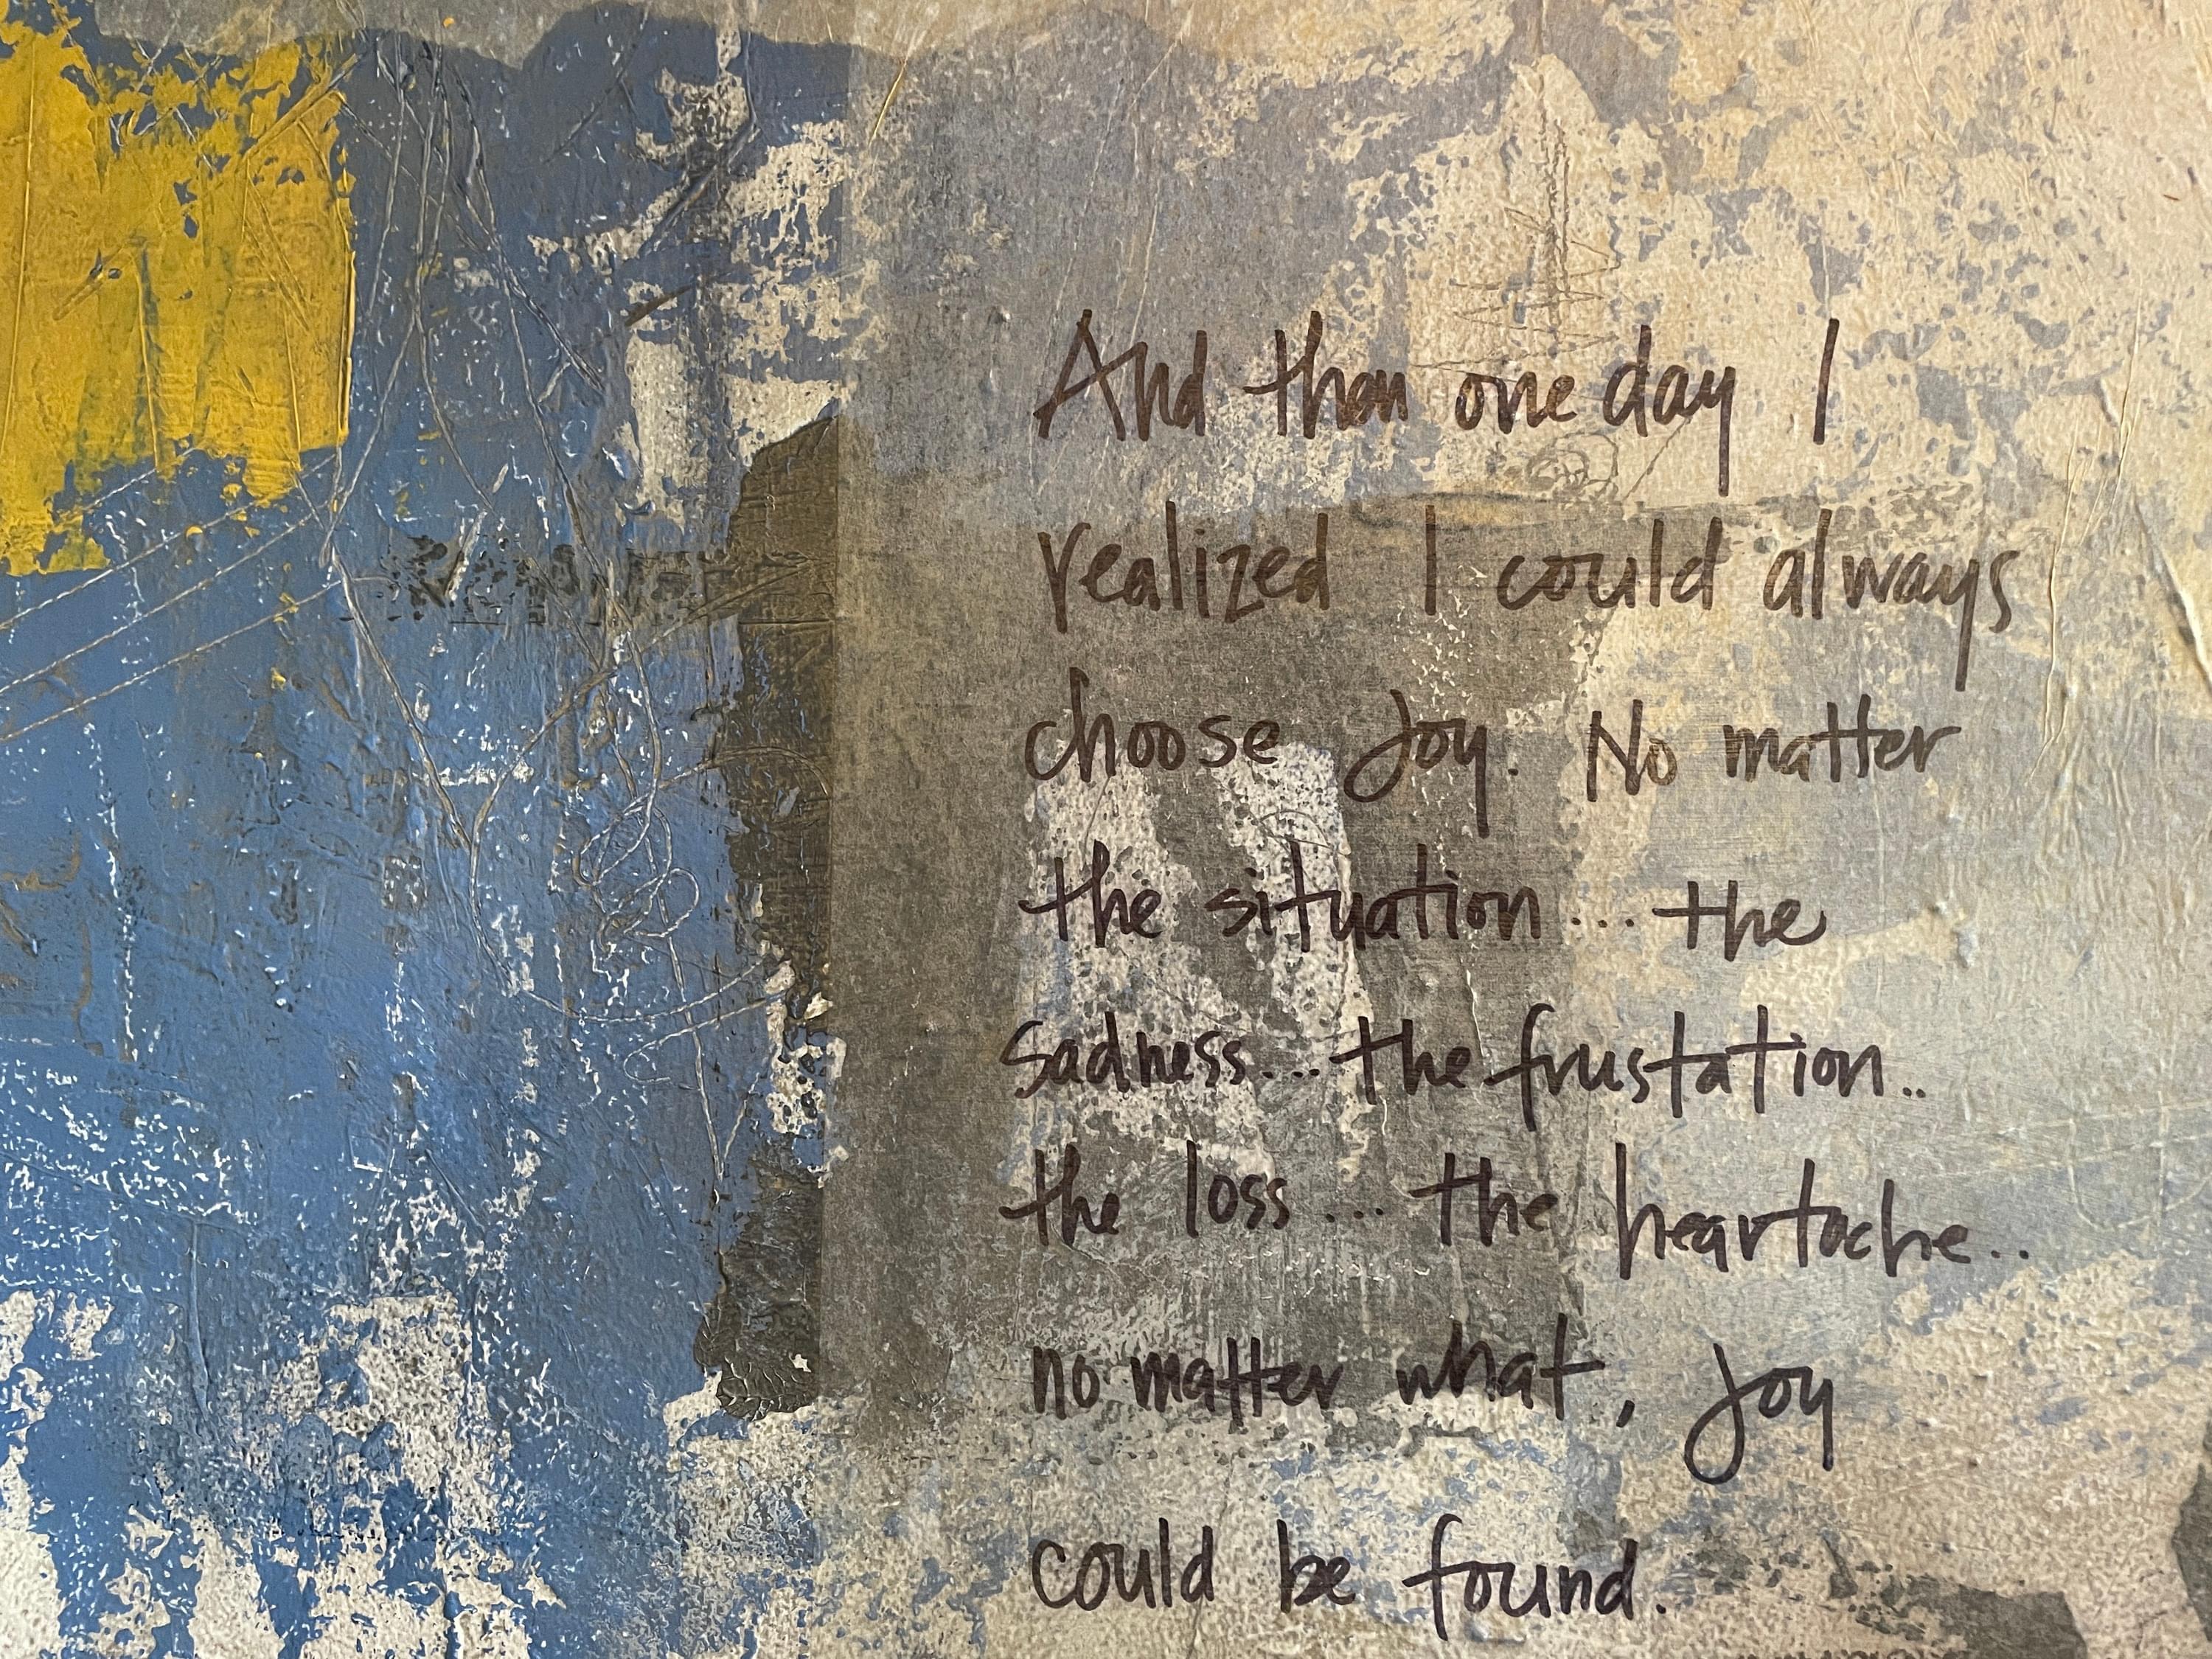 And than one day I
realized I could always
choose Joy. No matter
the situation... the
sadness... the frustation..
the loss... the heartache..
no matter what, Joy
could be found.